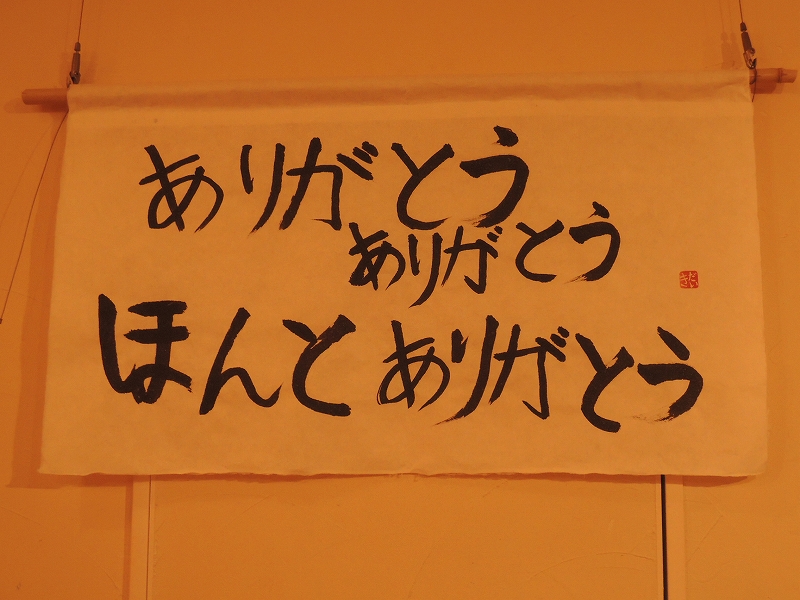 ありがとう
ありがとう
ほんとありがとう